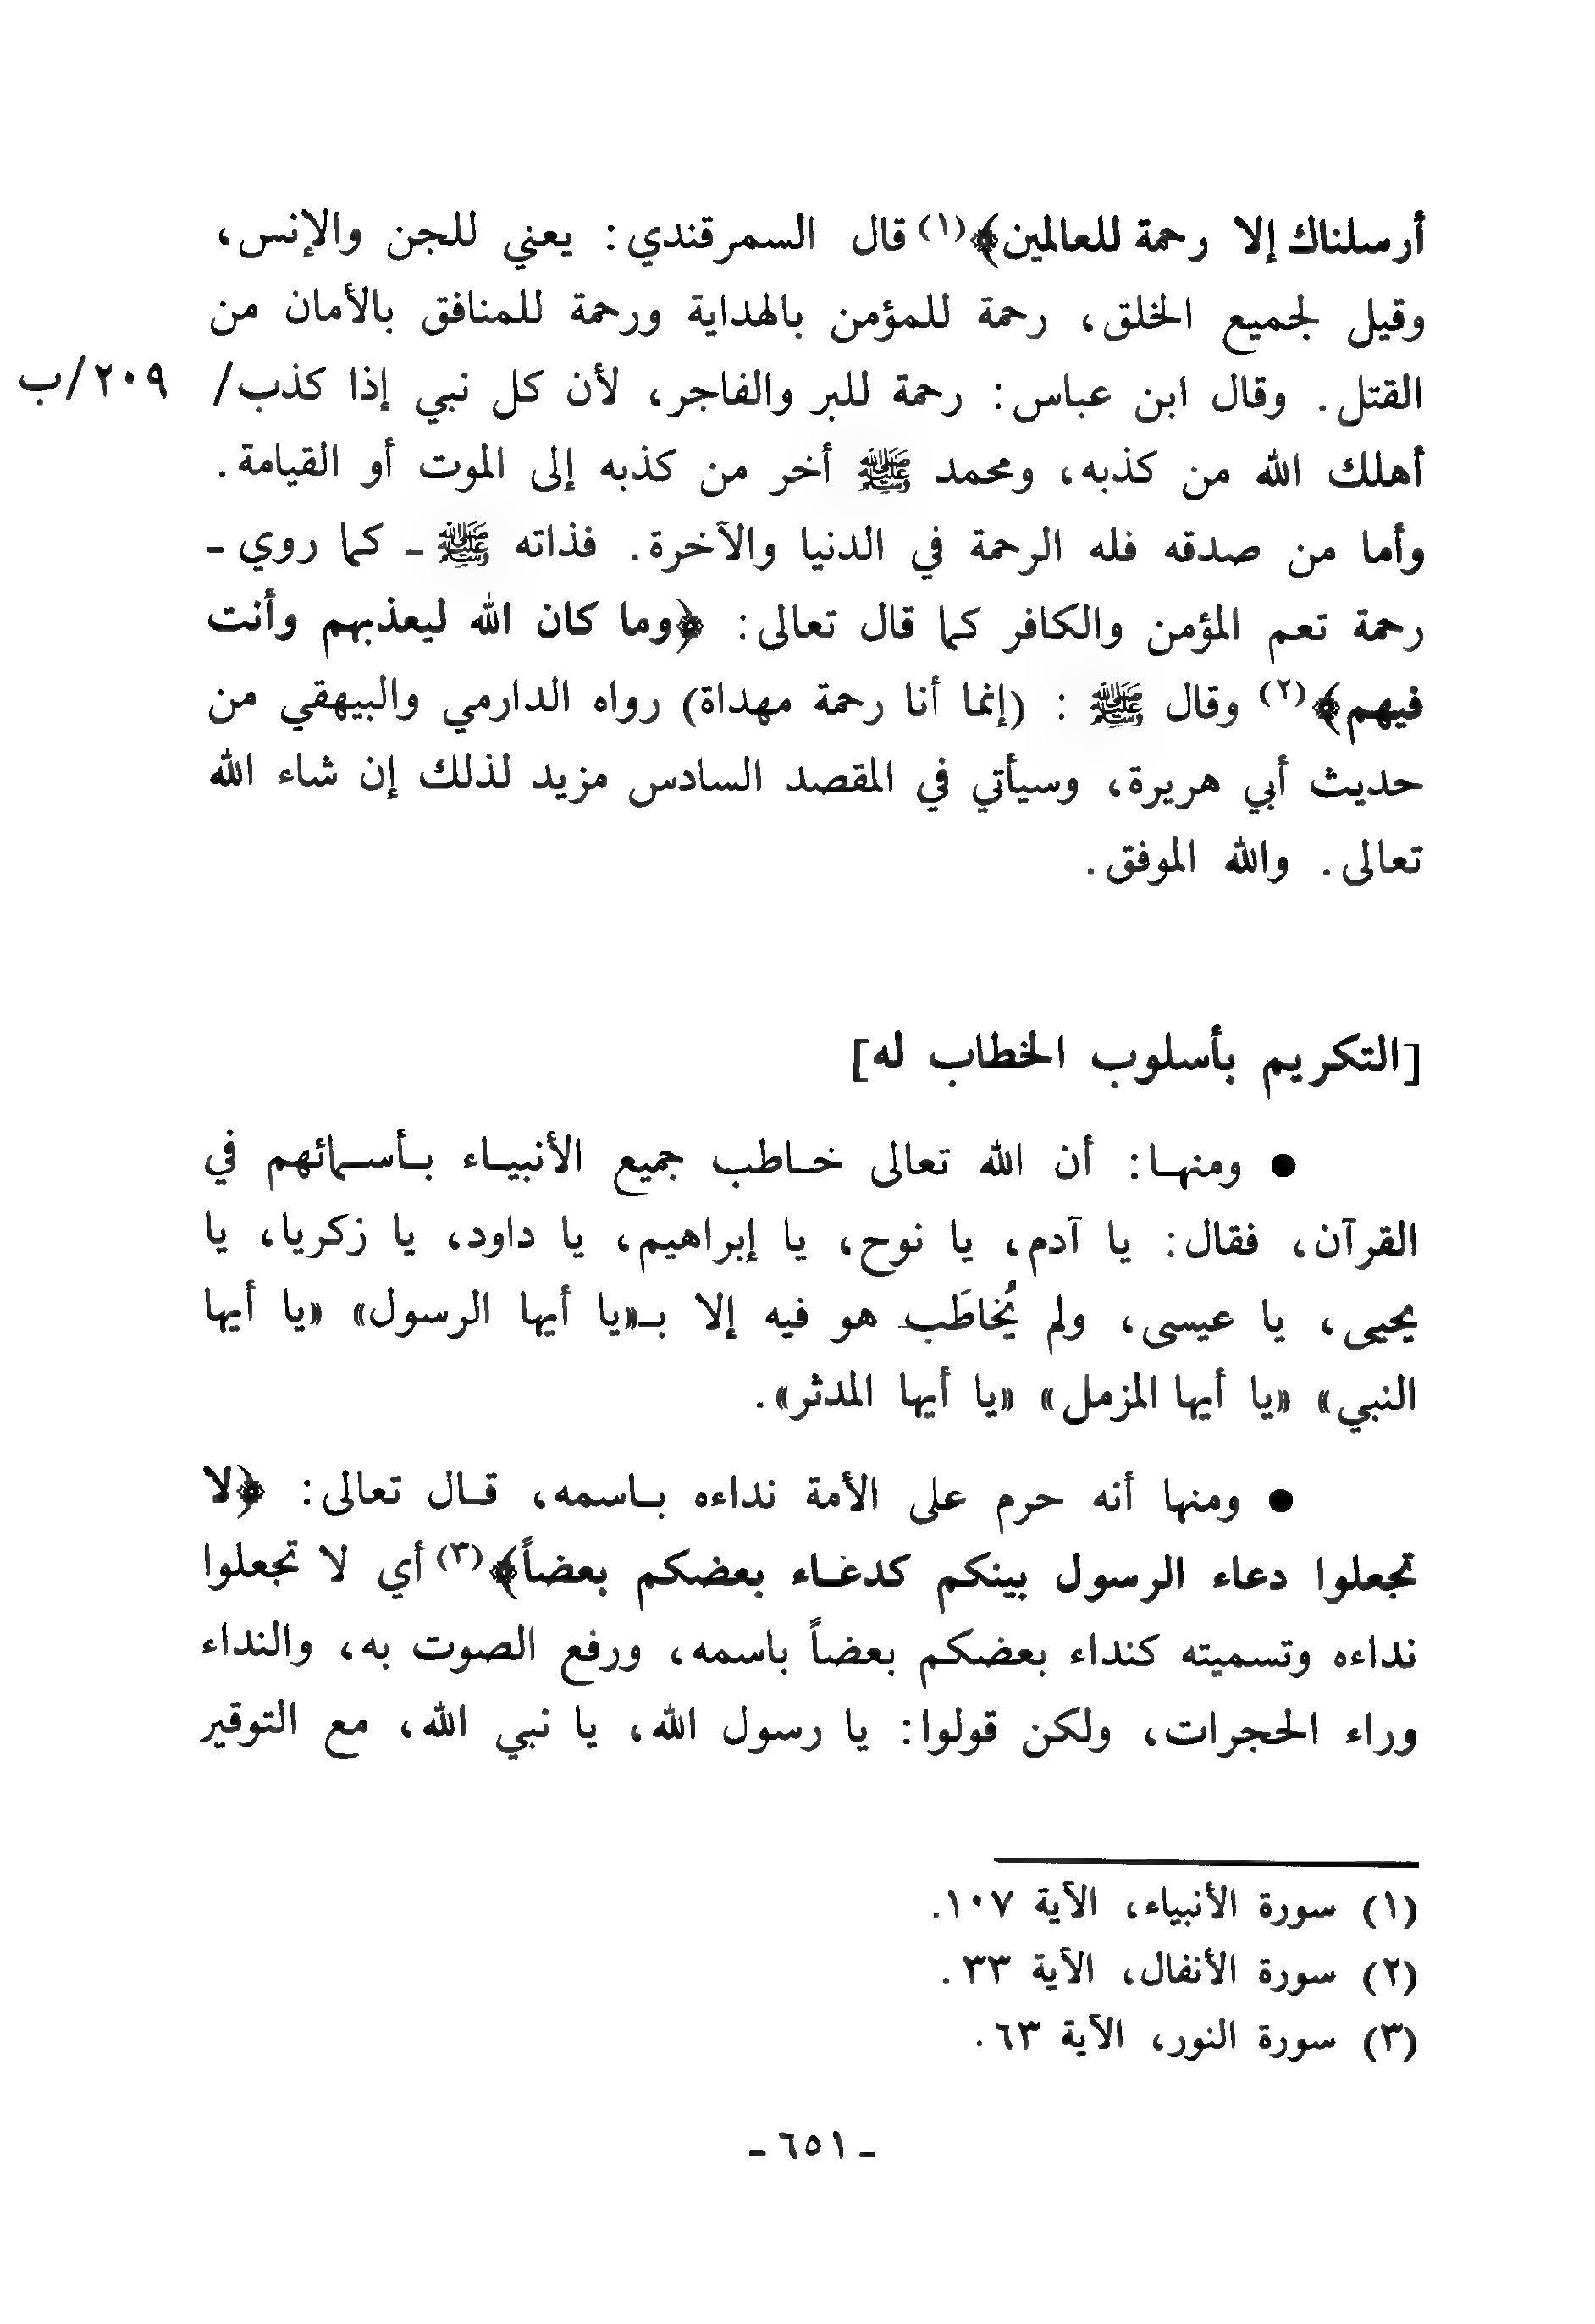 أرسلناك إلا رحمة للعالمين﴾(١) قال السمرقندي: يعني للجن والإنس،
وقيل لجميع الخلق، رحمة للمؤمن بالهداية ورحمة للمنافق بالأمان من
القتل. وقال ابن عباس: رحمة للبر والفاجر، لأن كل نبي إذا كذب/ ٢٠٩/ب
أهلك الله من كذبه، ومحمد ﷺ أخر من كذبه إلى الموت أو القيامة.
وأما من صدقه فله الرحمة في الدنيا والآخرة. فذاته ﷺ ـ كما روي ـ
رحمة تعم المؤمن والكافر كما قال تعالى: ﴿وما كان الله ليعذبهم وأنت
فيهم﴾(٢) وقال ﷺ : (إنما أنا رحمة مهداة) رواه الدارمي والبيهقي من
حديث أبي هريرة، وسيأتي في المقصد السادس مزيد لذلك إن شاء الله
تعالى. والله الموفق.
[التكريم بأسلوب الخطاب له]
● ومنهـا: أن الله تعالى خـاطب جميع الأنبيـاء بـأسـمائهم في
القرآن، فقال: يا آدم، يا نوح، يا إبراهيم، يا داود، يا زكريا، يا
يحيى، يا عيسى، ولم يُخاطَب هو فيه إلا بـ«يا أيها الرسول» «يا أيها
النبي» «يا أيها المزمل» «يا أيها المدثر».
● ومنها أنه حرم على الأمة نداءه بـاسمه، قـال تعالى: ﴿لا
تجعلوا دعاء الرسول بينكم كدعـاء بعضكم بعضاً﴾(٣) أي لا تجعلوا
نداءه وتسميته كنداء بعضكم بعضاً باسمه، ورفع الصوت به، والنداء
وراء الحجرات، ولكن قولوا: يا رسول الله، يا نبي الله، مع التوقير
(١) سورة الأنبياء، الآية ١٠٧.
(٢) سورة الأنفال، الآية ٣٣.
(٣) سورة النور، الآية ٦٣.
ـ ٦٥١ ـ